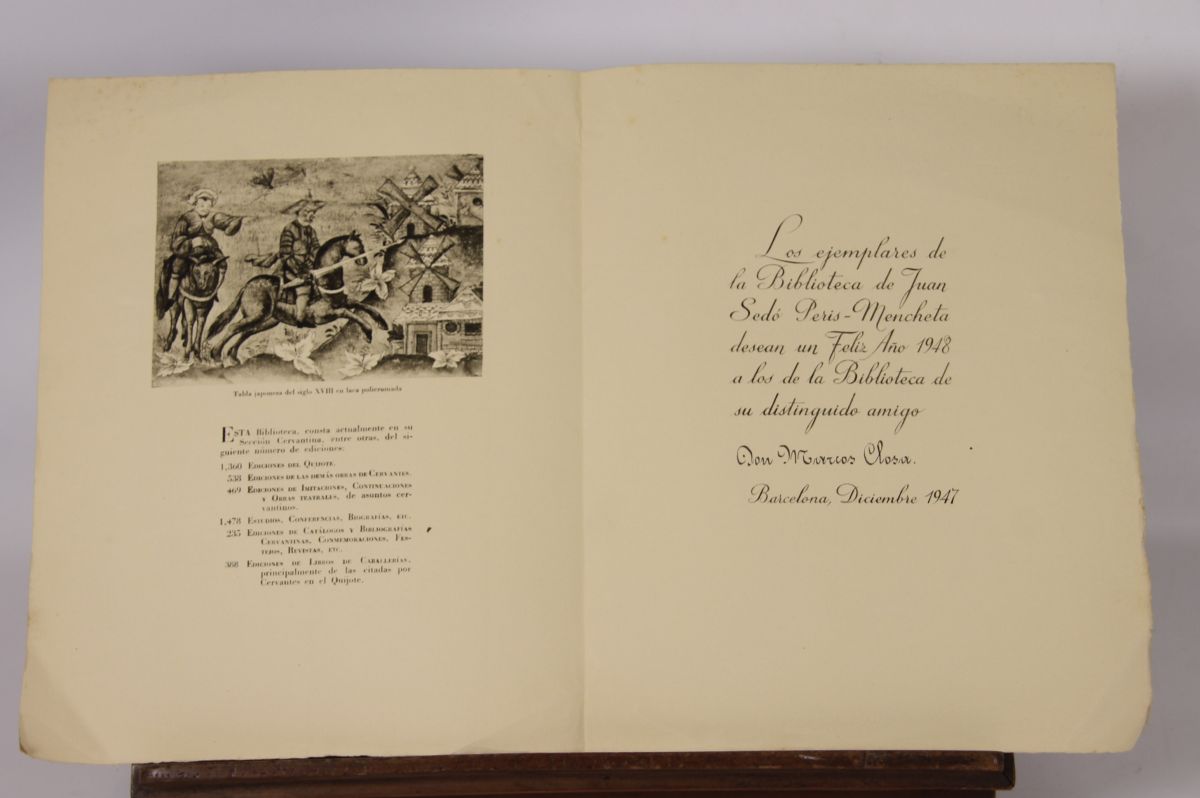 Tabla japonesa del siglo XVIII en laca policromada
ESTA Biblioteca, consta actualmente en su
Sección Cervantina, entre otras, del si-
guiente número de ediciones:
1,360 EDICIONES DEL QUIJOTE.
538 EDICIONES DE LAS DEMÁS OBRAS DE CERVANTES.
469 EDICIONES DE IMITACIONES, CONTINUACIONES
Y OBRAS TEATRALES, de asuntos cer-
vantinos.
1,478 ESTUDIOS, CONFERENCIAS, BIOGRAFÍAS, ETC.
235 EDICIONES DE CATÁLOGOS Y BIBLIOGRAFÍAS
CERVANTINAS, CONMEMORACIONES, FES-
TEJOS, REVISTAS, ETC.
388 EDICIONES DE LIBROS DE CABALLERÍAS,
principalmente de las citadas por
Cervantes en el Quijote.
Los ejemplares de
la Biblioteca de Juan
Sedó Peris-Mencheta
desean un Feliz Año 1948
a los de la Biblioteca de
su distinguido amigo
Don Marcos Closa.
Barcelona, Diciembre 1947